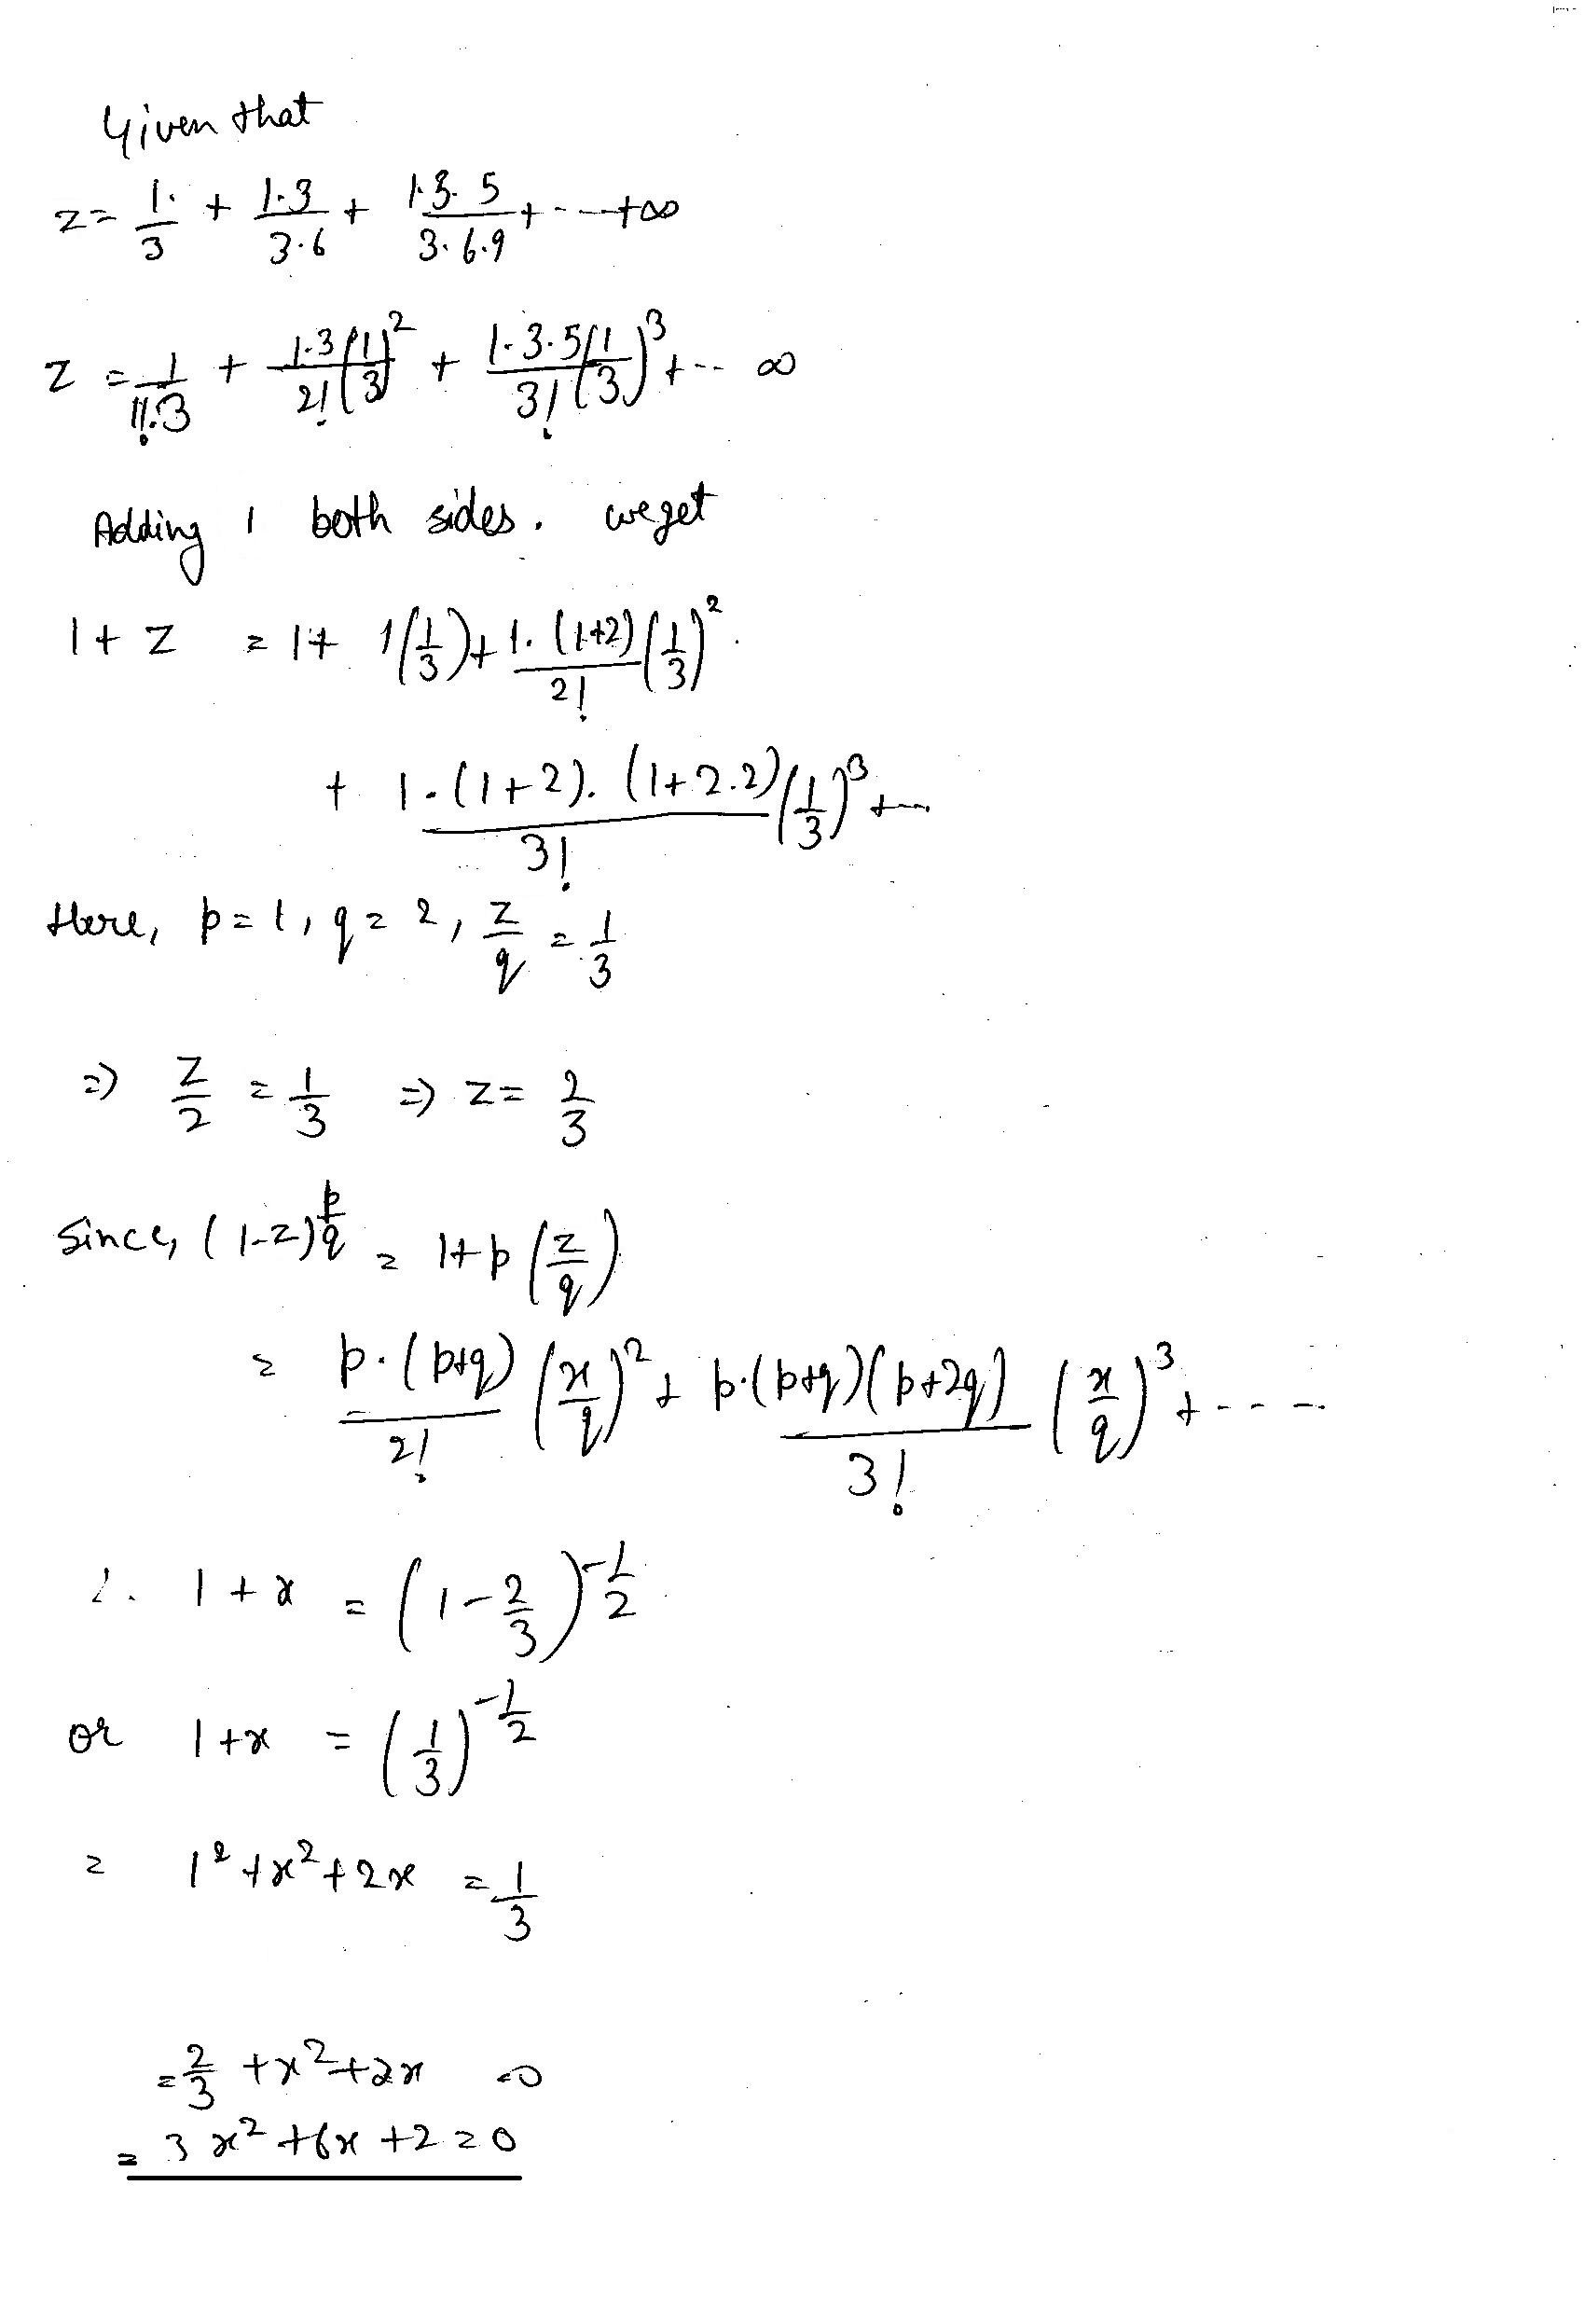 Given that
z = 1./3 + 1.3/3.6 + 1.3.5/3.6.9 + ---- +∞
z = 1/1!.3 + 1.3/2! (1/3)^2 + 1.3.5/3! (1/3)^3 + -- ∞
Adding 1 both sides. we get
1 + z = 1+ 1(1/3) + 1.(1+2)/2! (1/3)^2
+ 1.(1+2).(1+2.2)/3! (1/3)^3 + ---
Here, p=1, q=2, z/q = 1/3
=> z/2 = 1/3 => z = 2/3
Since, (1-z)^p/q = 1+p (z/q)
= p.(p+q)/2! (x/q)^2 + p.(p+q)(p+2q)/3! (x/q)^3 + ----
∴ 1+x = (1-2/3)^-1/2
or 1+x = (1/3)^-1/2
= 1^2+x^2+2x = 1/3
= 2/3 +x^2+2x =0
= 3x^2+6x+2=0